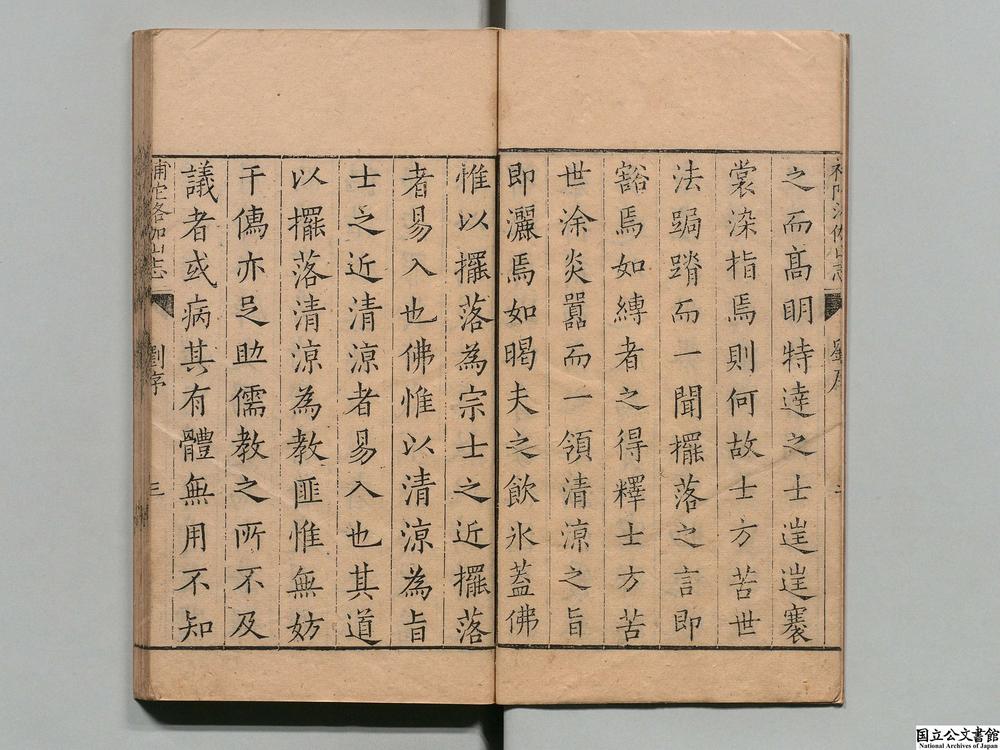 之而高明特達之士𨓏𨓏褰
裳染指焉則何故士方苦世
法跼蹐而一聞擺落之言即
豁焉如縛者之得釋士方苦
世涂炎囂而一領清涼之旨
即灑焉如暍夫之飲氷蓋佛
惟以擺落為宗士之近擺落
者易入也佛惟以清涼為旨
士之近清涼者易入也其道
以擺落清涼為教匪惟無妨
于儁亦足助儒教之所不及
議者或病其有體無用不知
補陀洛加山志
劉序
三
国立公文書館
National Archives of Japan